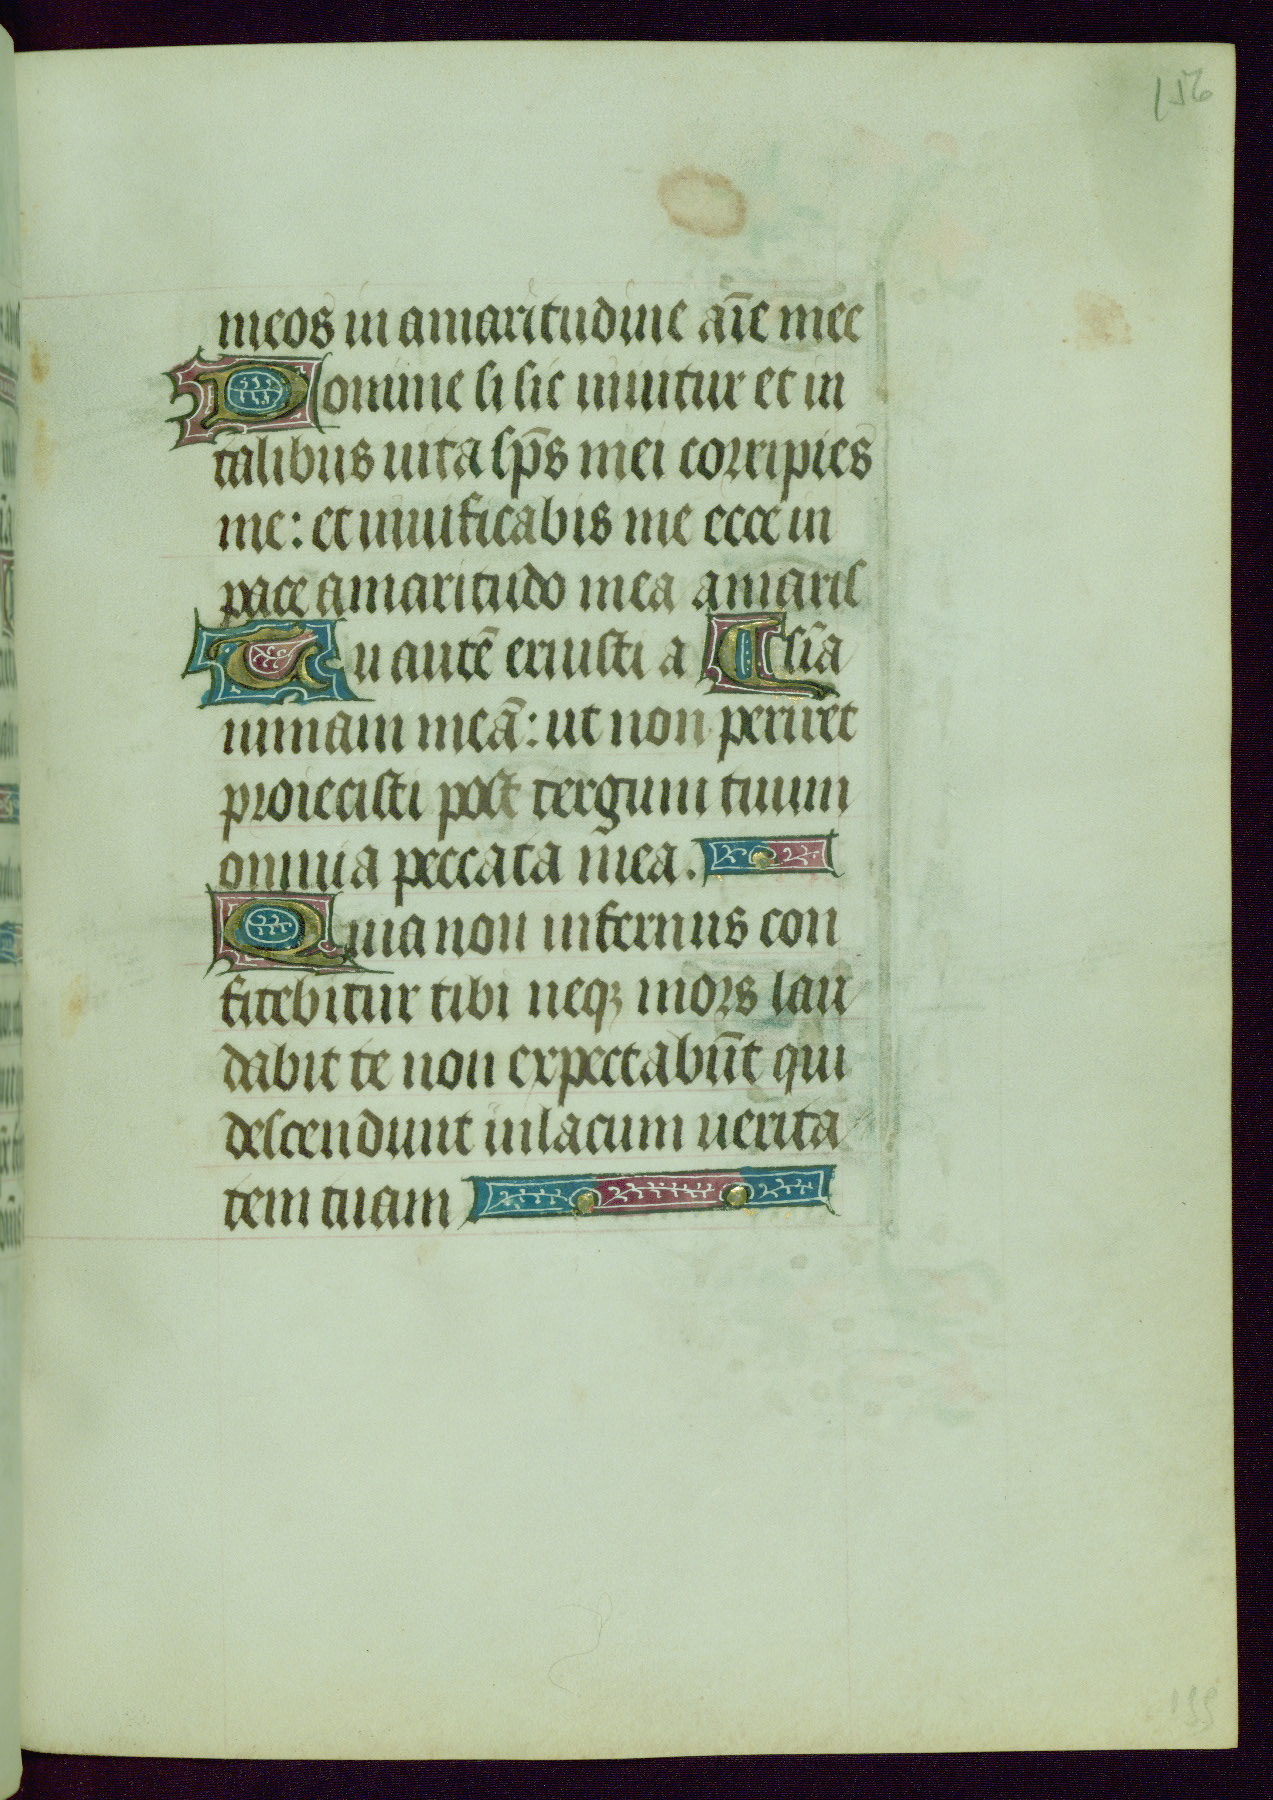 156
meos in amaritudine aīe mee
Domine si sic uiuitur et in
talibus uita sp̄s mei corripies
me: et uiuificabis me ecce in
pace amaritudo mea amaris
Tu autē eruisti a Tsīa
nimam meā: ut non periret
proiecisti post tergum tuum
omnia peccata mea.
Quia non infernus con
fitebitur tibi neqꝫ mors lau
dabit te non expectabūt qui
descendunt in lacum uerita
tem tuam
199